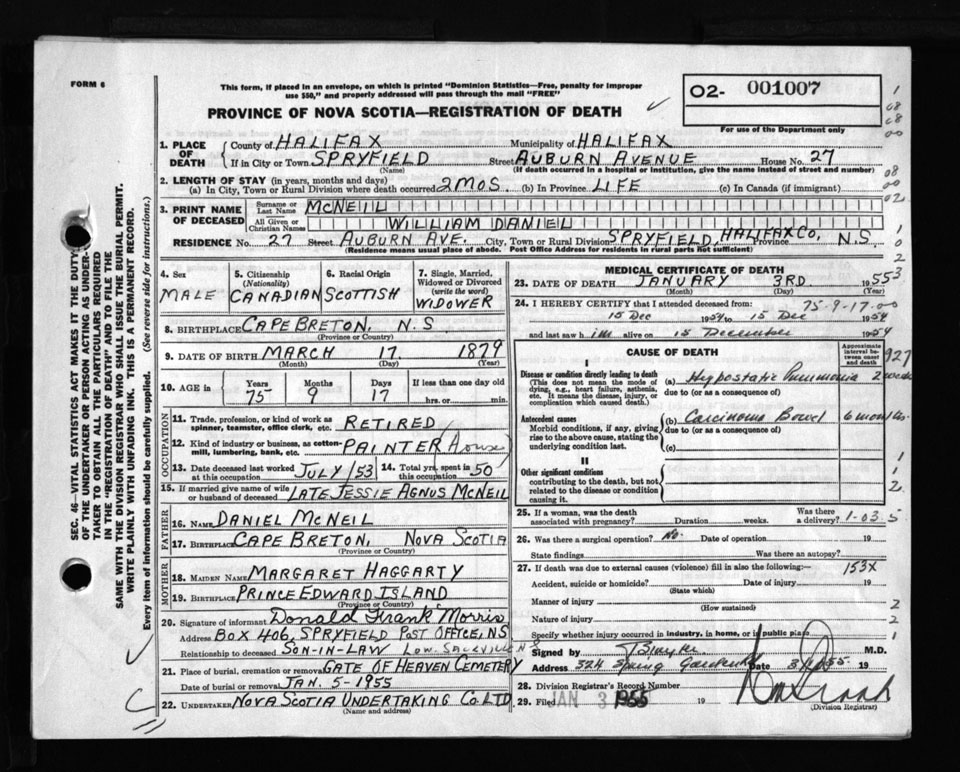 FORM 6
This form, if placed in an envelope, on which is printed "Dominion Statistics—Free, penalty for improper
use $50," and properly addressed will pass through the mail "FREE"
O2- 001007
For use of the Department only
PROVINCE OF NOVA SCOTIA—REGISTRATION OF DEATH
1. PLACE OF DEATH
County of HALIFAX Municipality of HALIFAX
If in City or Town SPRYFIELD Street AUBURN AVENUE House No. 27
(Name) (If death occurred in a hospital or institution, give the name instead of street and number)
2. LENGTH OF STAY (in years, months and days)
(a) In City, Town or Rural Division where death occurred 2 MOS. (b) In Province LIFE (c) In Canada (if immigrant)
3. PRINT NAME OF DECEASED
Surname or Last Name McNEIL
All Given or Christian Names WILLIAM DANIEL
RESIDENCE No. 27 Street AUBURN AVE. City, Town or Rural Division SPRYFIELD, HALIFAX CO, Province N.S.
(Residence means usual place of abode. Post Office Address for residents in rural parts not sufficient)
SEC. 46—VITAL STATISTICS ACT MAKES IT THE DUTY
OF THE UNDERTAKER OR PERSON ACTING AS UNDER-
TAKER TO OBTAIN ALL THE PARTICULARS REQUIRED
IN THE "REGISTRATION OF DEATH" AND TO FILE THE
SAME WITH THE DIVISION REGISTRAR WHO SHALL ISSUE THE BURIAL PERMIT.
WRITE PLAINLY WITH UNFADING INK. THIS IS A PERMANENT RECORD.
Every item of information should be carefully supplied. (See reverse side for instructions.)
4. Sex MALE
5. Citizenship (Nationality) CANADIAN
6. Racial Origin SCOTTISH
7. Single, Married, Widowed or Divorced (write the word) WIDOWER
8. BIRTHPLACE CAPE BRETON, N.S
(Province or Country)
9. DATE OF BIRTH MARCH 17. 1879
(Month) (Day) (Year)
10. AGE in Years 75 Months 9 Days 17 If less than one day old hrs. or min.
OCCUPATION
11. Trade, profession, or kind of work as spinner, teamster, office clerk, etc. RETIRED
12. Kind of industry or business, as cotton-mill, lumbering, bank, etc. PAINTER (House)
13. Date deceased last worked at this occupation JULY/53 14. Total yrs. spent in this occupation 50
15. If married give name of wife or husband of deceased LATE JESSIE AGNUS McNEIL
FATHER
16. NAME DANIEL McNEIL
17. BIRTHPLACE CAPE BRETON, NOVA SCOTIA
(Province or Country)
MOTHER
18. MAIDEN NAME MARGARET HAGGARTY
19. BIRTHPLACE PRINCE EDWARD ISLAND
(Province or Country)
20. Signature of informant Donald Frank Morris
Address BOX 406, SPRYFIELD POST OFFICE, NS
Relationship to deceased SON-IN-LAW LOW. SACKVILLE N
21. Place of burial, cremation or removal GATE OF HEAVEN CEMETERY
Date of burial or removal JAN. 5-1955
22. UNDERTAKER NOVA SCOTIA UNDERTAKING CO. LTD
(Name and address)
MEDICAL CERTIFICATE OF DEATH
23. DATE OF DEATH JANUARY 3RD 1955
(Month) (Day) (Year)
24. I HEREBY CERTIFY that I attended deceased from: 75-9-17-00
15 Dec 1954 to 15 Dec 1954
and last saw him alive on 15 December 1954
CAUSE OF DEATH
Approximate interval between onset and death
927
I
Disease or condition directly leading to death
(This does not mean the mode of
dying, e.g., heart failure, asthenia,
etc. It means the disease, injury, or
complication which caused death.)
(a) Hypostatic Pneumonia 2 weeks
due to (or as a consequence of)
Antecedent causes
Morbid conditions, if any, giving
rise to the above cause, stating the
underlying condition last.
(b) Carcinoma Bowel 6 months
due to (or as a consequence of)
(c)
II
Other significant conditions
contributing to the death, but not
related to the disease or condition
causing it.
25. If a woman, was the death associated with pregnancy? Duration weeks. Was there a delivery? 1-03 5
26. Was there a surgical operation? No. Date of operation 19
State findings Was there an autopsy?
27. If death was due to external causes (violence) fill in also the following:— 153X
Accident, suicide or homicide? Date of injury 19
(State which)
Manner of injury
(How sustained)
Nature of injury
Specify whether injury occurred in industry, in home, or in public place
Signed by M.D.
Address 324 Spring Garden Rd Date 3/1/55. 19
28. Division Registrar's Record Number
29. Filed JAN 3 1955 19
(Division Registrar)